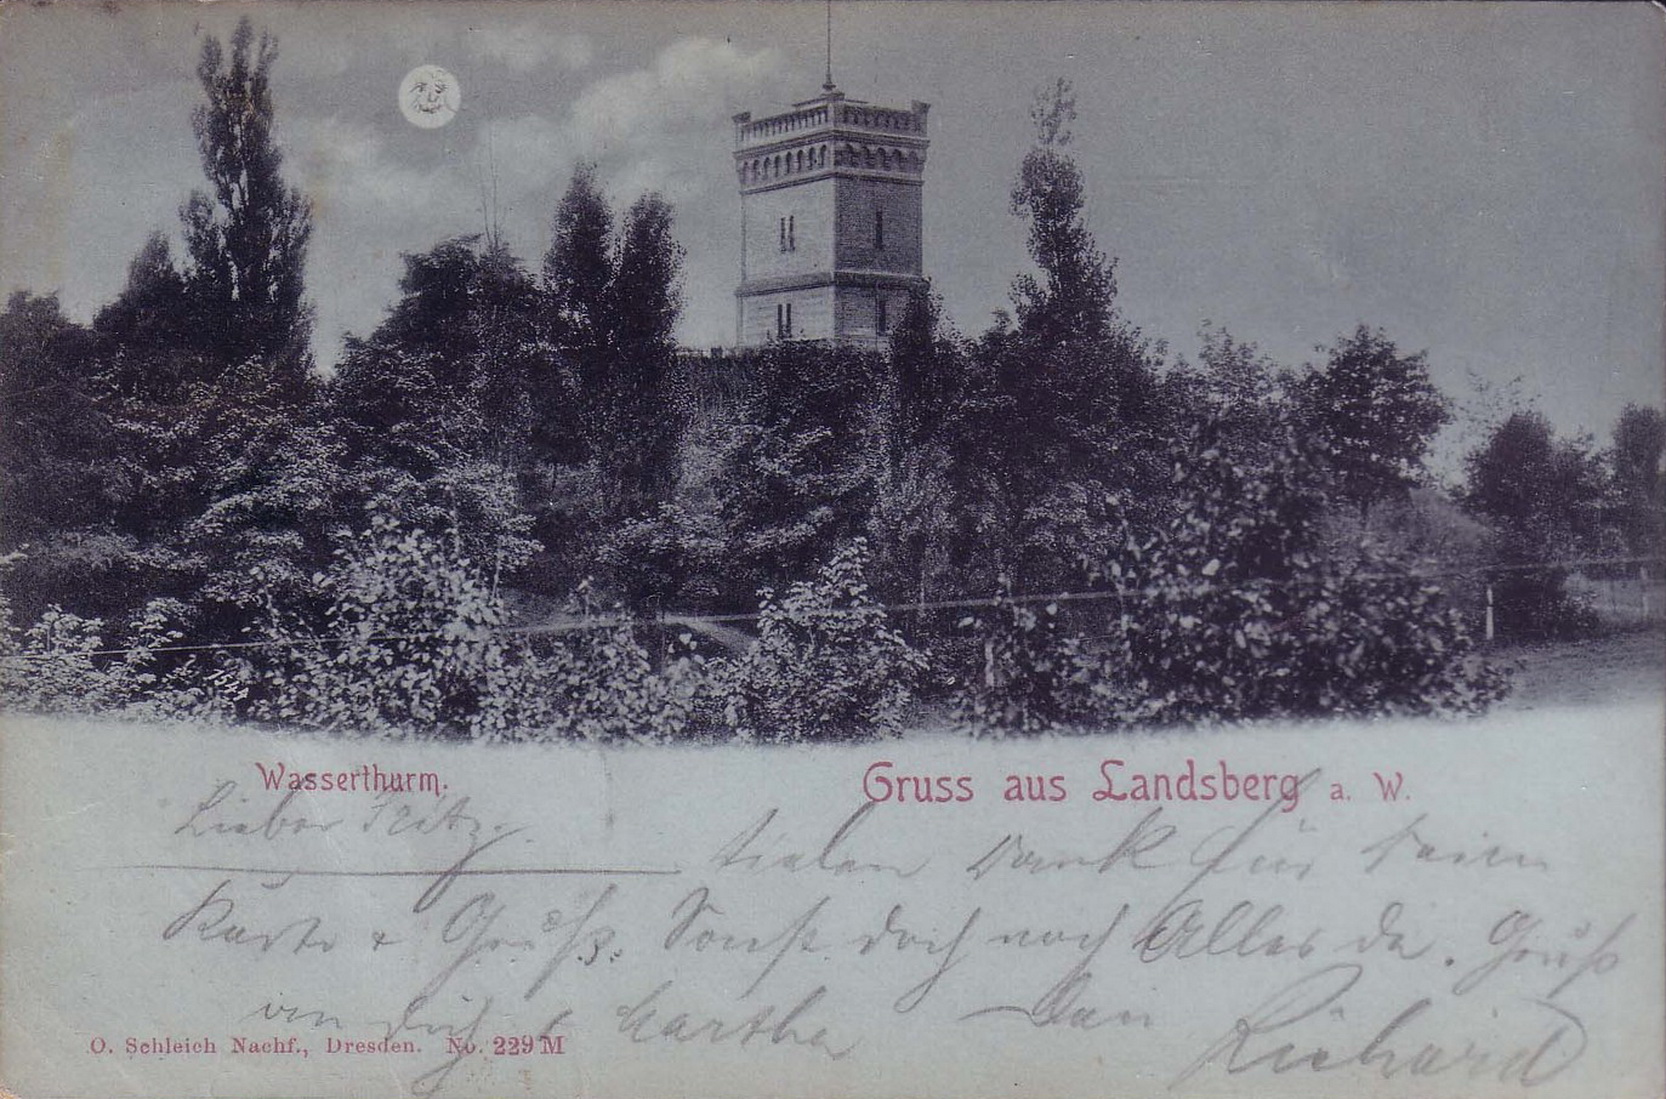 1544
Wasserthurm.
Gruss aus Landsberg a. W.
Lieber Fritz.
Vielen Dank für Deine
Karte + Grüße. Sonst doch noch Alles da. Gruß
an Dich & Martha Dein Richard
O. Schleich Nachf., Dresden. No. 229 M